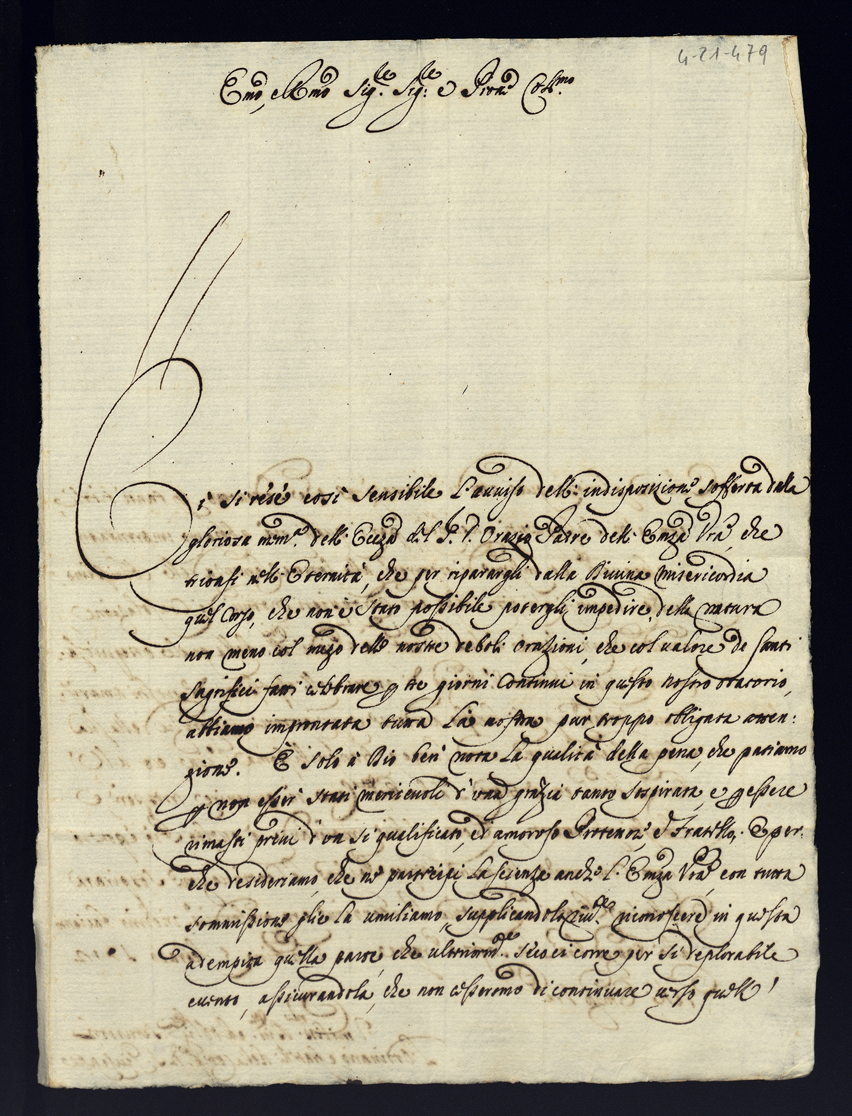 4-21-479
Emo, e Rmo Sig.re Sig.re e Pron Col.mo
Ci si rese così sensibile l'avviso dell' indisposizione sofferta dalla
gloriosa mem.a dell' Ecc.za del P. D. Orazio Padre dell' Em.za Vra, che
nell' Eternità, che per riparargli dalla Divina misericordia
quel corso, che non è stato possibile potergli impedire della natura
non meno col mezo delle nostre deboli orazioni, che col valore de Santi
Sagrifici fatti celebrare p tre giorni continui in questo nostro oratorio,
abbiamo improntata tutta la nostra pur troppo obligata atten:
zione. È solo à Dio ben nota la qualità della pena, che patiamo
p non esser stati meritevoli d' una grazia tanto sospirata, e p essere
rimasti privi d' un si qualificato, ed amoroso Protettore, e Fratello. E per:
che desideriamo, che ne partecipi la scienza anche l' Em.za Vra, con tutta
sommissione glie la umiliamo, supplicandola riconoscere in questa
adempita quella parte, che ci corre per sì deplorabile
evento, assicurandola, che non cesseremo di continuare verso quell'